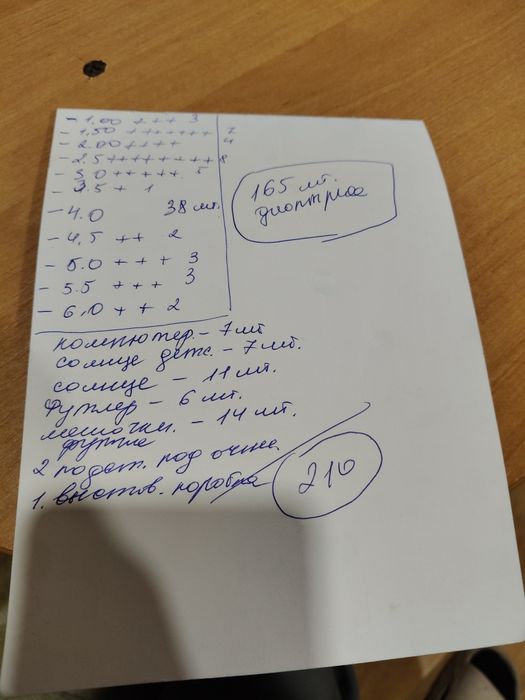 - 1.00 +++ 3
- 1.50 +++++++ 7
- 2.00 ++++ 4
- 2.5 ++++++++ 8
- 3.0 +++++ 5
- 3.5 + 1
- 4.0 38 шт.
- 4,5 ++ 2
- 5.0 +++ 3
- 5.5 +++ 3
- 6,0 ++ 2
165 шт.
диоптрия
компютер. - 7 шт
солнце детс. - 7 шт.
солнце - 11 шт.
Футляр - 6 шт.
мешочки. - 14 шт.
2 подст. под очки.
1. выстав. коробка
210